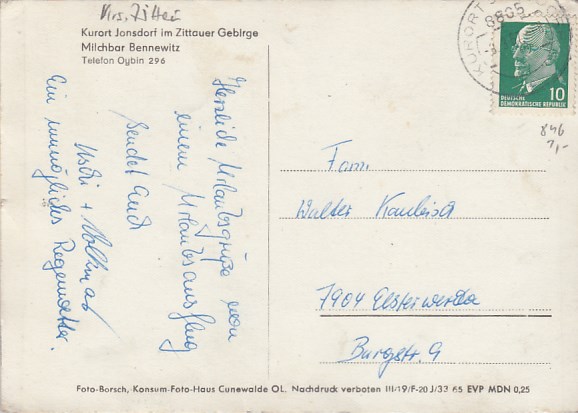 Krs. Zittau
Kurort Jonsdorf im Zittauer Gebirge
Milchbar Bennewitz
Telefon Oybin 296
Herzliche Urlaubsgrüße von
einem Urlaubsausflug
sendet Euch
Uschi + Volkmar
Ein unmögliches Regenwetter.
8805
KURORT
DEUTSCHE
DEMOKRATISCHE REPUBLIK
10
846
1,-
Fam.
Walter
7904 Elsterwerda
Burgstr. 9
Foto-Borsch, Konsum-Foto-Haus Cunewalde OL. Nachdruck verboten III/19/F-20 J/33 65 EVP MDN 0,25